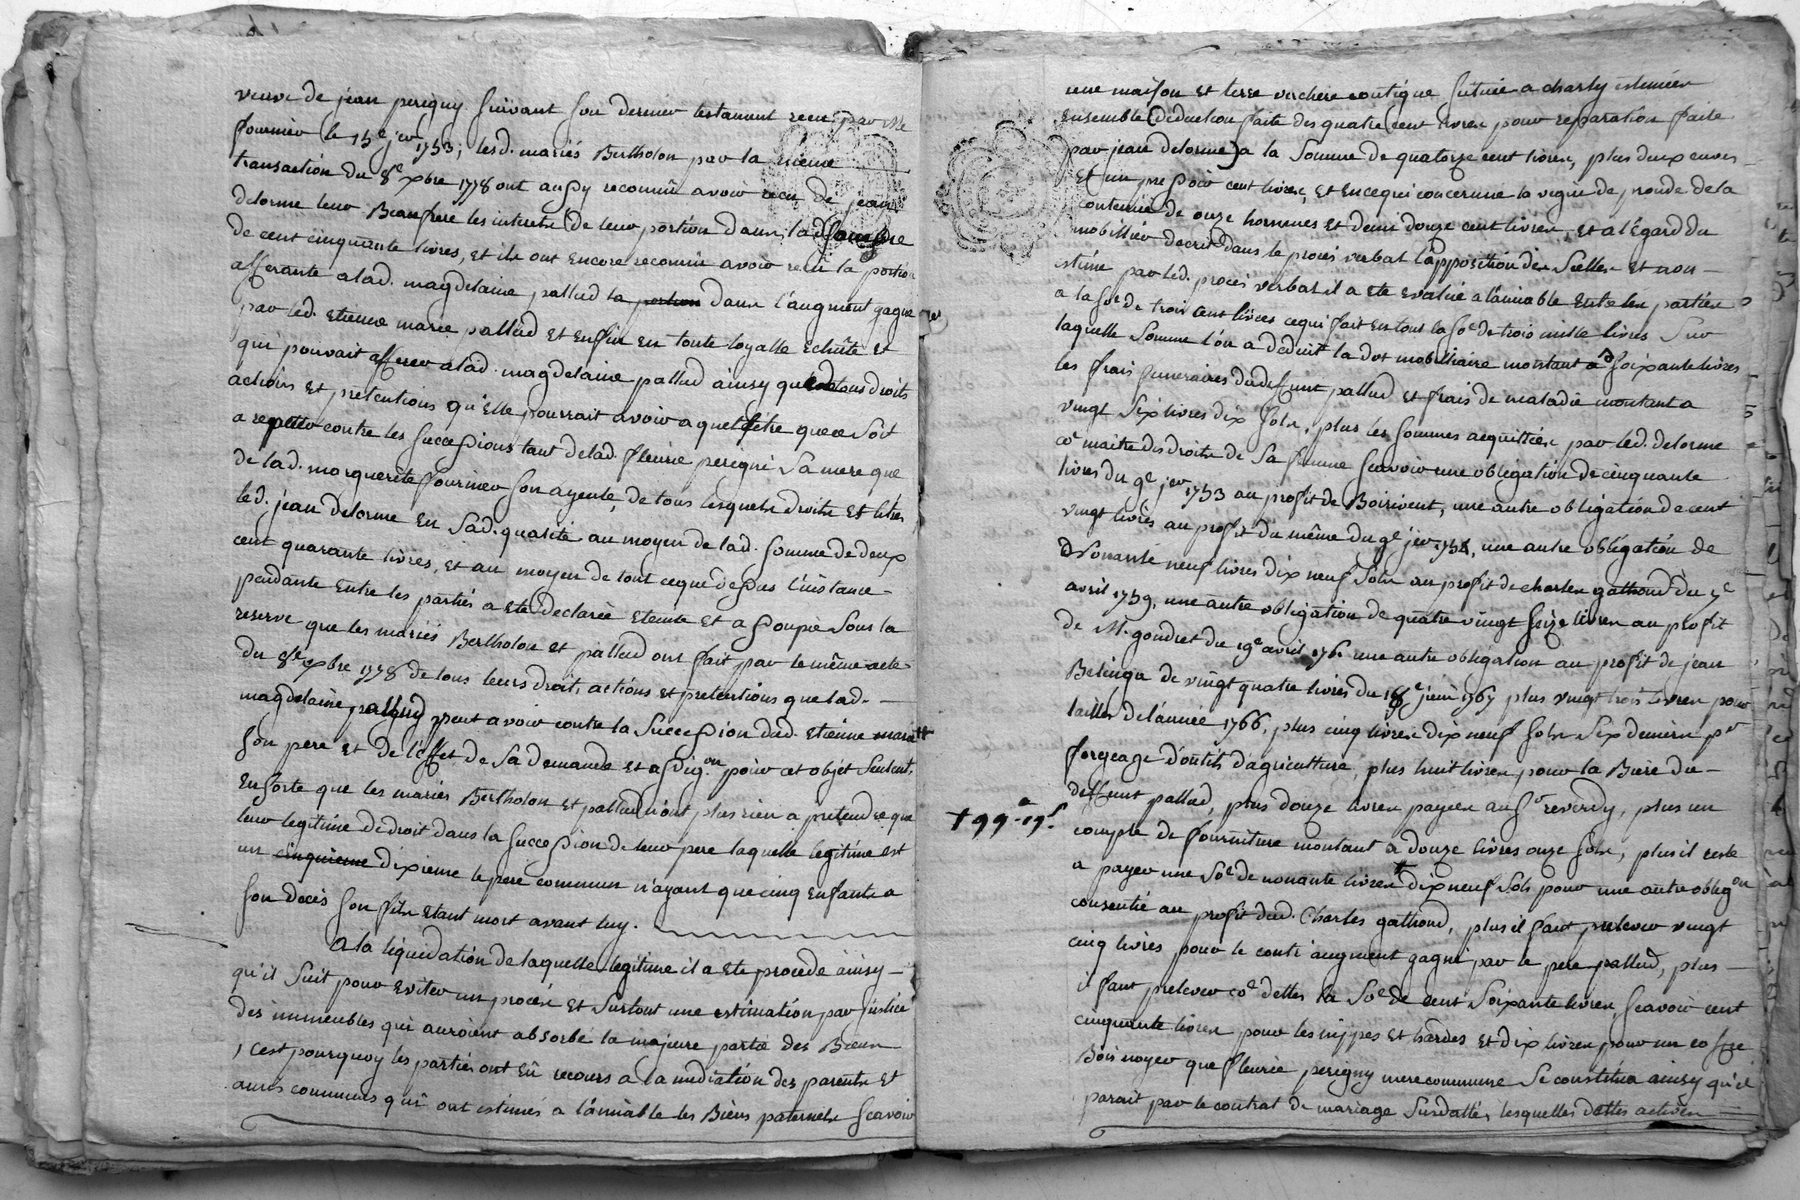 veuve de jean perigny suivant son dernier testament recu par Me
fournier le 15e jer 1753; lesd. mariés Bertholon par la même
transaction du 8e xbre 1778 ont aussy reconnû avoir recu de jean
delorme leur Beaufrere les interets de leur portion dans lad. somme
de cent cinquante livres, et ils ont encore reconnû avoir recu la portion
afferante a lad. magdelaine pallud la portion dans l'augment gagné
par led. etienne marie pallud et enfin en toute loyalle echûte et
qui pouvait afferer a lad. magdelaine pallud ainsy que tous droits
actions et pretentions qu'elle pourrait avoir a quel titre que ce soit
a repeter contre les successions tant de lad. fleurie perigni sa mere que
de lad. marguerite fournier son ayeule, de tous lesquels droits et titres
led. jean delorme en sad. qualité au moyen de lad. somme de deux
cent quarante livres, et au moyen de tout ceque dessus l'instance
pendante entre les parties a eté declarée eteinte et assoupie sous la
reserve que les mariés Bertholon et pallud ont fait par le même acte
du 8e xbre 1778 de tous leurs droits, actions et pretentions que lad.
magdelaine pallud peut avoir contre la succession dud. etienne marie
son pere et de l'effet de sa demande et assig.on pour cet objet seulemt.
en sorte que les mariés Bertholon et pallud n'ont plus rien a pretendre que
leur legitime de droit dans la succession de leur pere laquelle legitime est
un cinquieme dixieme le pere commun n'ayant que cinq enfants a
son decès son fils etant mort avant luy.
a la liquidation de laquelle legitime il a eté procede ainsy
qu'il suit pour eviter un procès et surtout une estimation par justice
des immeubles qui auroient absorbé la majeure partie des Biens
, c'est pourquoy les parties ont eû recours a la mediation des parents et
amis communs qui ont estimés a l'amiable les Biens paternels scavoir
une maison et terre verchere contigue située a charly estimées
ensemble (deduction faite des quatre cent livres pour reparation faite
par jean delorme) a la somme de quatorze cent livres, plus deux cuves
et un pressoir cent livres, et en cequi concerne la vigne de
contenue de onze hommes et demi douze cent livres, et a l'égard du
mobillier decrit dans le procès verbal d'apposition des scellés et non
estimé par led. procès verbal il a eté evalué a l'amiable entre les parties
a la so.e de trois cent livres cequi fait en tout la so.e de trois mille livres sur
laquelle somme l'on a deduit la dot mobilliaire montant a soixante livres
les frais funeraires dudeffunt pallud et frais de maladie montant a
vingt six livres dix sols, plus les sommes acquittées par led. delorme
co.e maitre des droits de sa femme scavoir une obligation de cinquante
livres du 9e jer 1753 au profit de Boirivent, une autre obligation de cent
vingt livres au profit du même du 9e jer 1754, une autre obligation de
nonante neuf livres dix neuf sols au profit de charles gathoud du 7e
avril 1759, une autre obligation de quatre vingt seize livres au profit
de M. gondret du 19e avril 176. une autre obligation au profit de jean
Belingu de vingt quatre livres du 18e juin 1767 plus vingt trois livres pour
tailles de l'année 1766, plus cinq livres dix neuf sols six deniers pr
forgeage d'outils d'agriculture, plus huit livres pour la Biere du
deffunt pallud, plus douze livres payées au sr reverdy, plus un
† 99 - 19s.
compte de fourniture montant a douze livres onze sols, plus il reste
a payer une so.e de nonante livres † dix neuf sols pour une autre oblig.on
consentie au profit dud. Charles gathoud, plus il faut prelever vingt
cinq livres pour le conti augment gagné par le pere pallud, plus
il faut prelever co.e dettes la so.e de cent soixante livres, scavoir cent
cinquante livres pour les nippes et hardes et dix livres pour un coffre
Bois noyer que fleurie perigny mere commune se constitua ainsy qu'il
parait par le contrat de mariage susdatté, lesquelles dettes actives